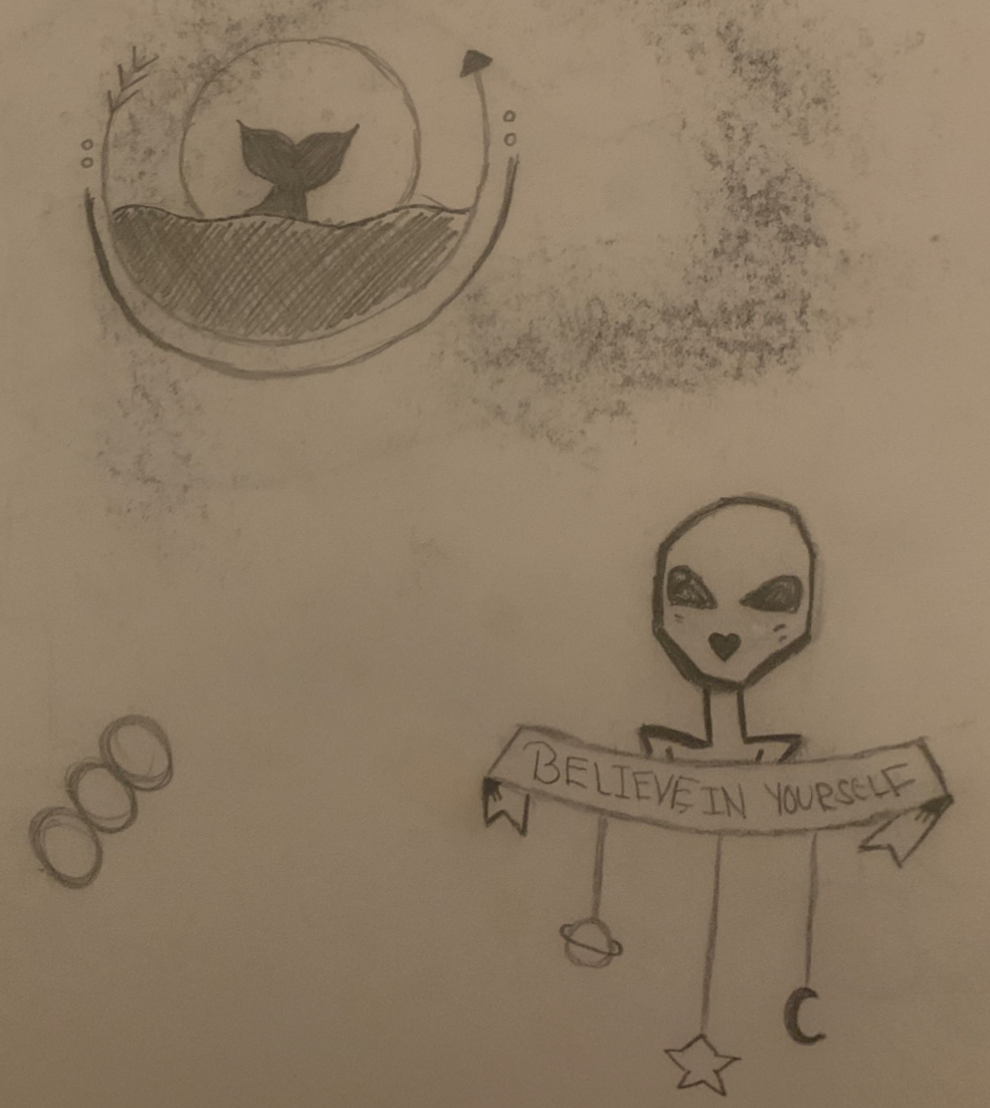 BELIEVE IN YOURSELF